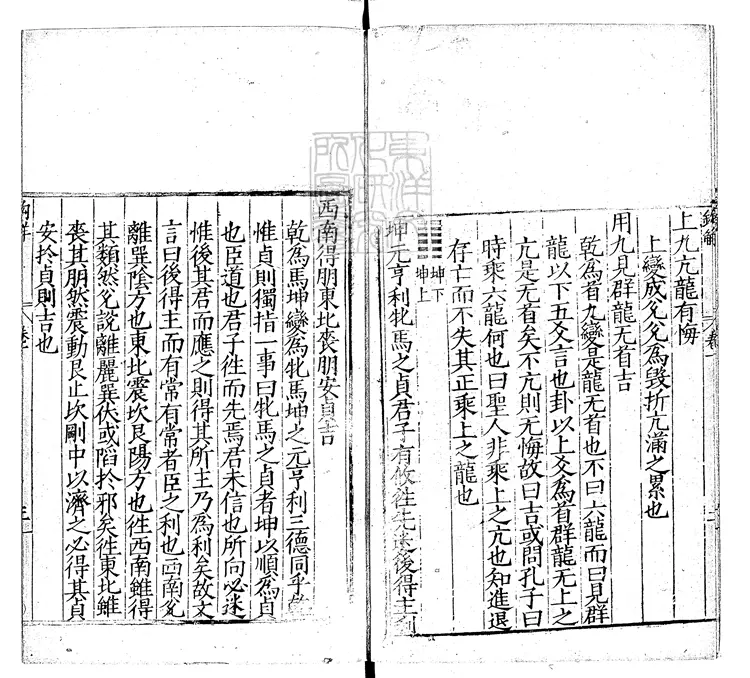 上九亢龍有悔
上變成兊兊為毀折亢滿之累也
用九見群龍无首吉
乾為首九變是龍无首也不曰六龍而曰見群
龍以下五爻言也卦以上爻為首群龍无上之
亢是无首矣不亢則无悔故曰吉或問孔子曰
時乘六龍何也曰聖人非乘上之亢也知進退
存亡而不失其正乘上之龍也
坤下
坤上
坤元亨利牝馬之貞君子有攸往先迷後得主利
西南得朋東北喪朋安貞吉
乾為馬坤變為牝馬坤之元亨利三德同乎
惟貞則獨指一事曰牝馬之貞者坤以順為貞
也臣道也君子往而先焉君未信也所向必迷
惟後其君而應之則得其所主乃為利矣故文
言曰後得主而有常有常者臣之利也西南兊
離巽陰方也東北震坎艮陽方也往西南雖得
其類然兊說離麗巽伏或陷於邪矣往東北雖
喪其朋然震動艮止坎剛中以濟之必得其貞
安於貞則吉也